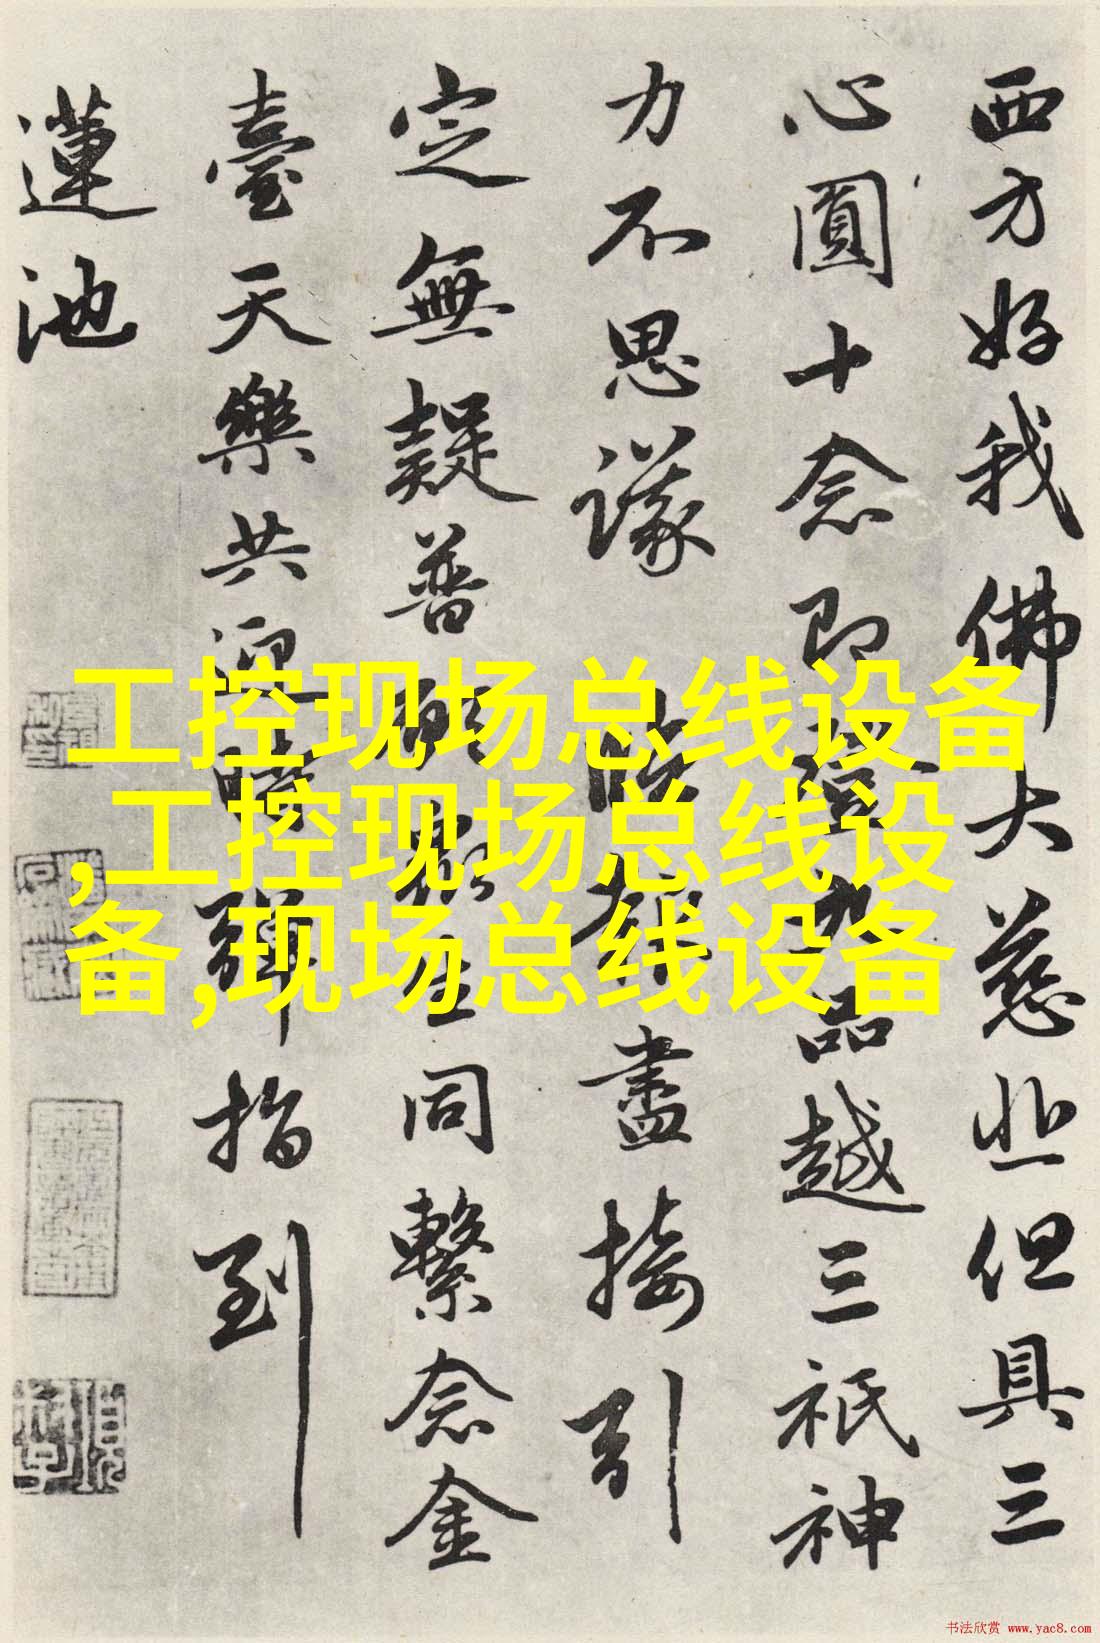 西方好我佛大慈悲但具三
心圓十念即登九品越三祇神
力不思議臨報盡接引
定無疑普願眾生同繫念金
臺天樂共迎時彈指到
蓮池
工控现场总线设备
,工控现场总线设
备,现场总线设备
书法欣赏 www.yac8.com